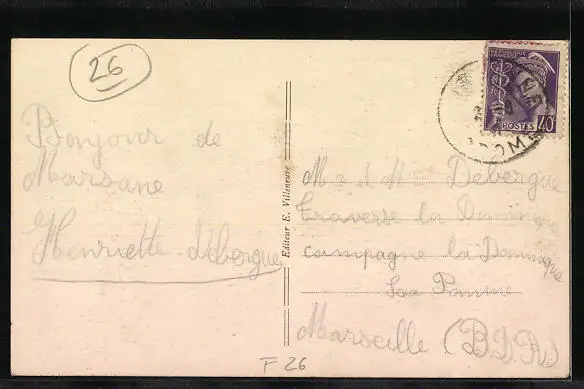 26
Bonjour de
Marsane
Henriette Debergue
Editeur E. Villeneuve
REPUBLIQUE FRANÇAISE
POSTES 40
DROME
Mr et Mme Debergue
traverse la Dominique
campagne la Dominique
La Pomme
Marseille (B.D.R)
F 26